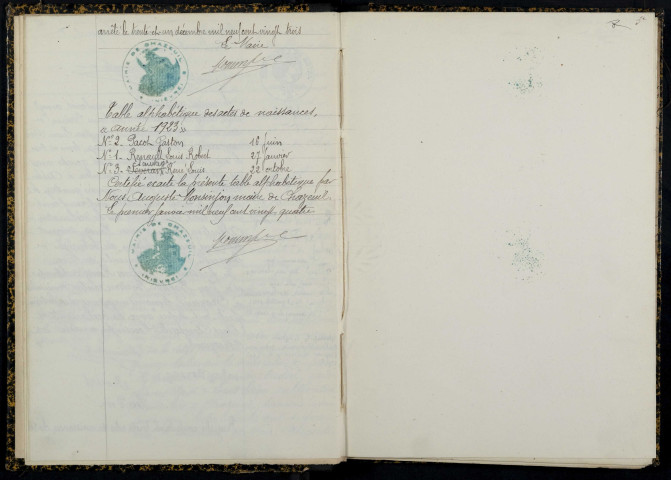 arrêté le trente et un décembre mil neuf cent vingt trois
Le Maire
MAIRIE DE CHAZEUIL
Table alphabétique des actes de naissances,
« année 1923 »
N° 2 - Pacot Gaston 16 juin
N° 1 - Renault Louis Robert 27 janvier
N° 3 - René Louis 22 octobre
Certifié exacte la présente table alphabétique par
Nous Auguste Monsinjon maire de Chazeuil
Le premier janvier mil neuf cent vingt quatre
MAIRIE DE CHAZEUIL